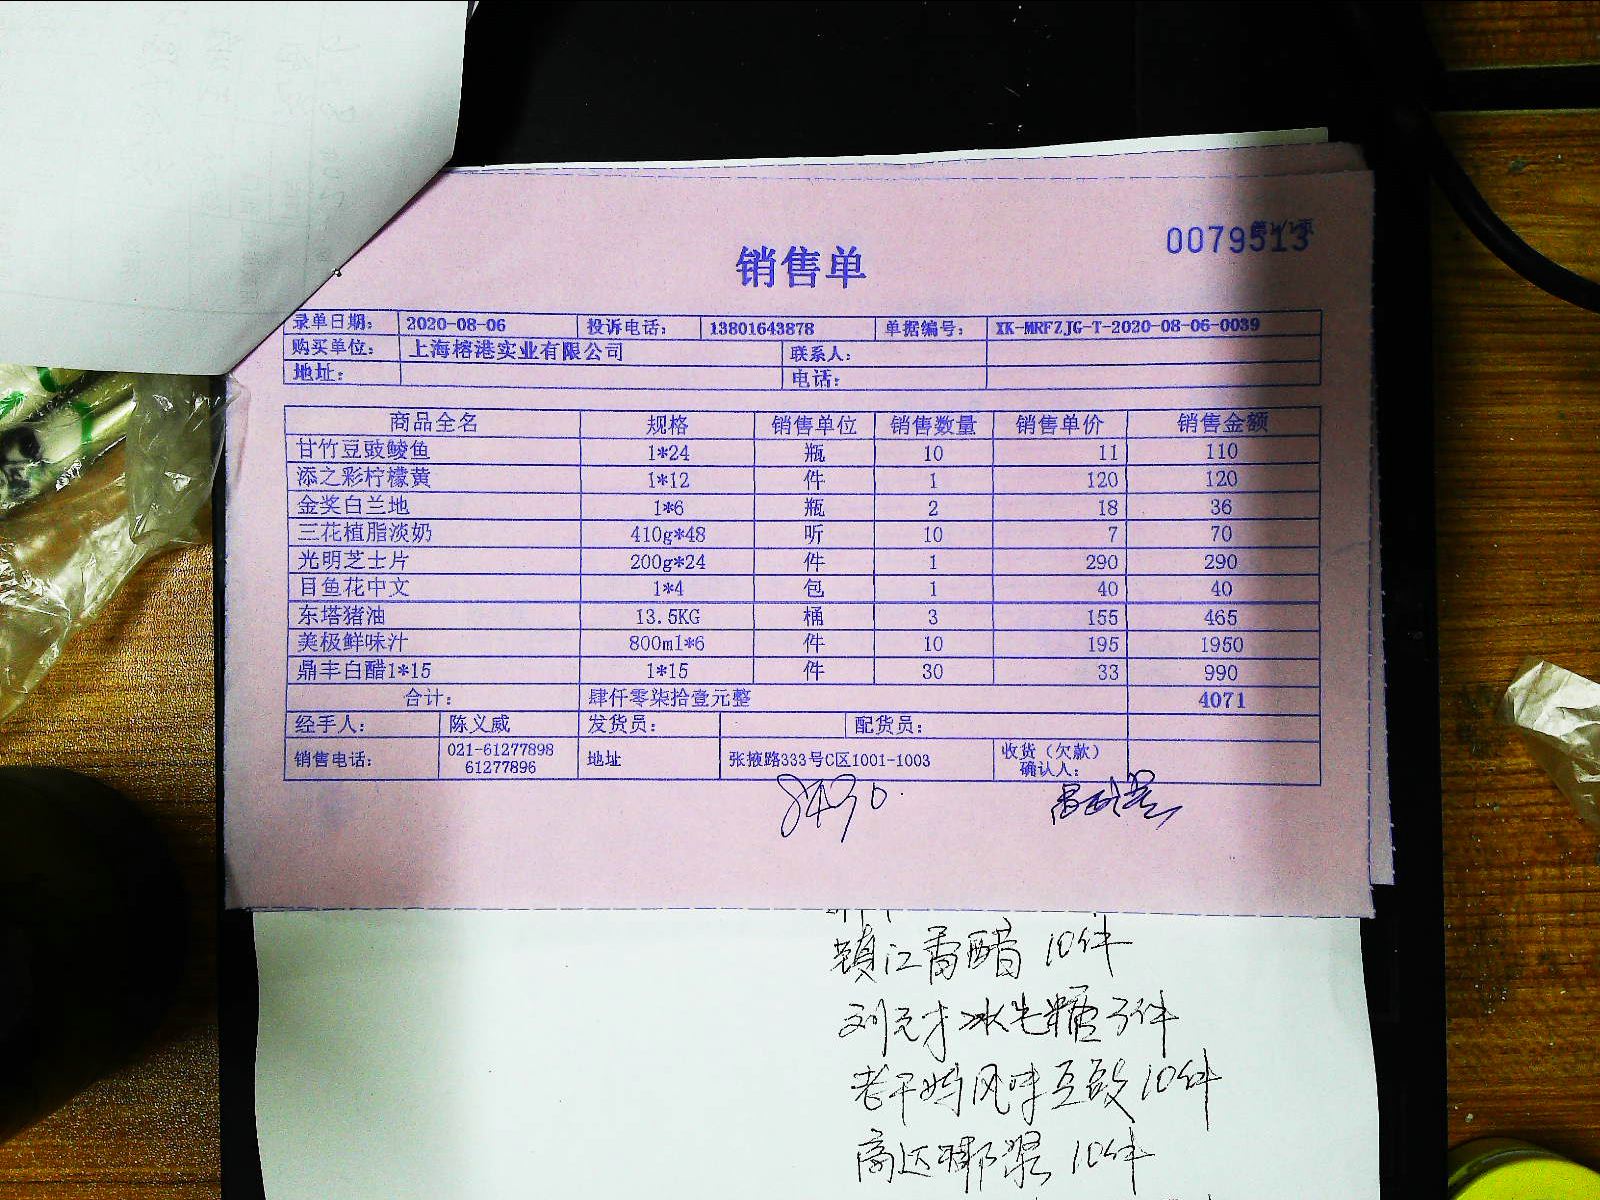 0079513
销售单
录单日期： 2020-08-06 投诉电话： 13801643878 单据编号： XK-MRFZJG-T-2020-08-06-0039
购买单位： 上海榕港实业有限公司 联系人：
地址： 电话：
商品全名 规格 销售单位 销售数量 销售单价 销售金额
甘竹豆豉鲮鱼 1*24 瓶 10 11 110
添之彩柠檬黄 1*12 件 1 120 120
金奖白兰地 1*6 瓶 2 18 36
三花植脂淡奶 410g*48 听 10 7 70
光明芝士片 200g*24 件 1 290 290
目鱼花中文 1*4 包 1 40 40
东塔猪油 13.5KG 桶 3 155 465
美极鲜味汁 800ml*6 件 10 195 1950
鼎丰白醋1*15 1*15 件 30 33 990
合计： 肆仟零柒拾壹元整 4071
经手人： 陈义威 发货员： 配货员：
销售电话： 021-61277898 61277896 地址 张掖路333号C区1001-1003 收货（欠款）确认人：
8490.
镇江香醋 10件
冰老糖 3件
老干妈风味豆豉 10件
高达椰浆 10件